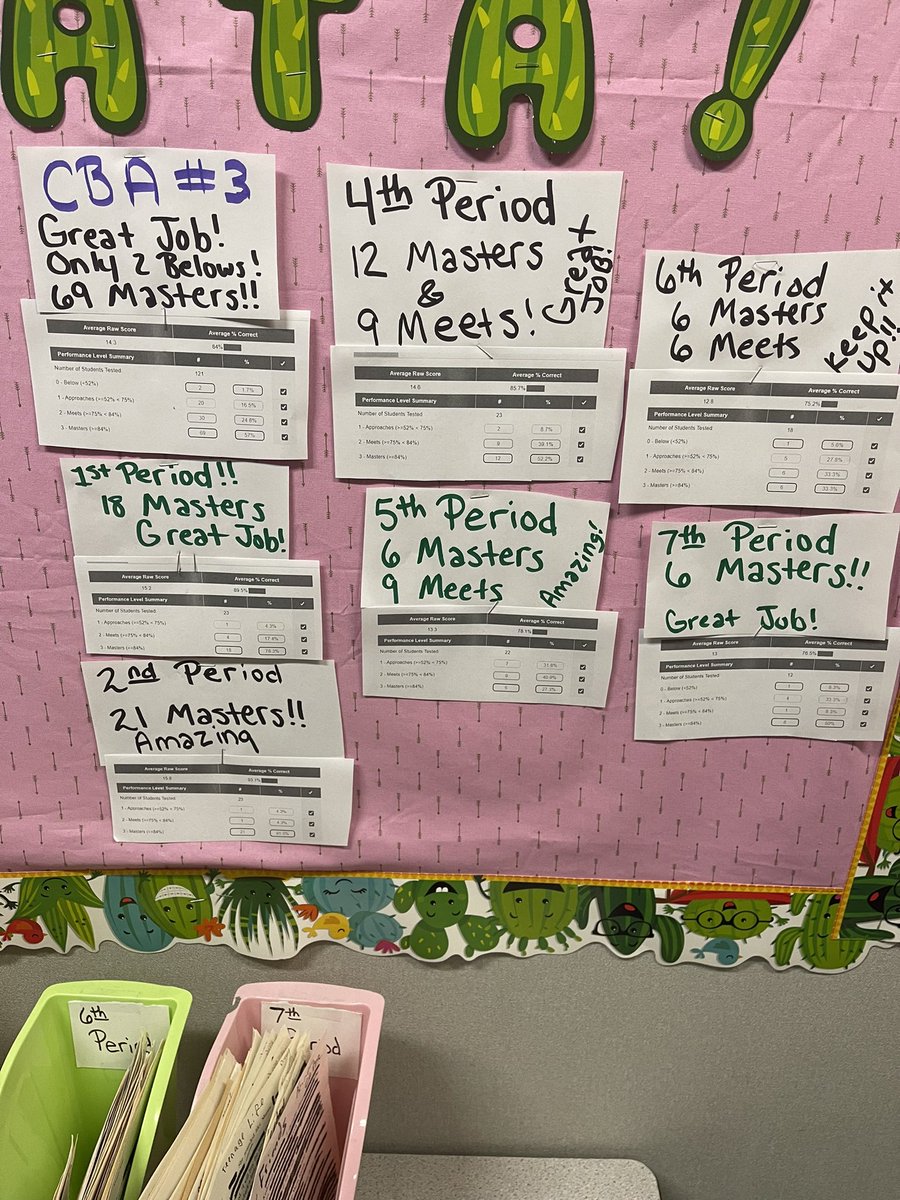 ATA!
CBA #3
Great Job!
Only 2 Belows!
69 Masters!!
Average Raw Score Average % Correct
14.3 84%
Performance Level Summary # % ✓
Number of Students Tested 121
0 - Below (<52%) 2 1.7%
1 - Approaches (>=52% < 75%) 20 16.5%
2 - Meets (>=75% < 84%) 30 24.8%
3 - Masters (>=84%) 69 57%
1st Period!!
18 Masters
Great Job!
Average Raw Score Average % Correct
15.2 89.5%
Performance Level Summary # % ✓
Number of Students Tested 23
1 - Approaches (>=52% < 75%) 1 4.3%
2 - Meets (>=75% < 84%) 4 17.4%
3 - Masters (>=84%) 18 78.3%
2nd Period
21 Masters!!
Amazing
Average Raw Score Average % Correct
15.8
Performance Level Summary # % ✓
Number of Students Tested 23
1 - Approaches (>=52% < 75%) 1 4.3%
2 - Meets (>=75% < 84%) 1 4.3%
3 - Masters (>=84%) 21
4th Period
12 Masters
&
9 Meets!
Great Job!
Average Raw Score Average % Correct
14.6 85.7%
Performance Level Summary # % ✓
Number of Students Tested 23
1 - Approaches (>=52% < 75%) 2 8.7%
2 - Meets (>=75% < 84%) 9 39.1%
3 - Masters (>=84%) 12 52.2%
5th Period
6 Masters
9 Meets
Amazing!
Average Raw Score Average % Correct
13.3 78.1%
Performance Level Summary # % ✓
Number of Students Tested 22
1 - Approaches (>=52% < 75%) 7 31.8%
2 - Meets (>=75% < 84%) 9 40.9%
3 - Masters (>=84%) 6 27.3%
6th Period
6 Masters
6 Meets
Keep it up!!
Average Raw Score Average % Correct
12.8 75.2%
Performance Level Summary # % ✓
Number of Students Tested 18
0 - Below (<52%) 1 5.6%
1 - Approaches (>=52% < 75%) 5 27.8%
2 - Meets (>=75% < 84%) 6 33.3%
3 - Masters (>=84%) 6 33.3%
7th Period
6 Masters!!
Great Job!
Average Raw Score Average % Correct
13 76.5%
Performance Level Summary # % ✓
Number of Students Tested 12
0 - Below (<52%) 1 8.3%
1 - Approaches (>=52% < 75%) 4 33.3%
2 - Meets (>=75% < 84%) 1 8.3%
3 - Masters (>=84%) 6 50%
6th
Period
7th
Period
Teenage Life